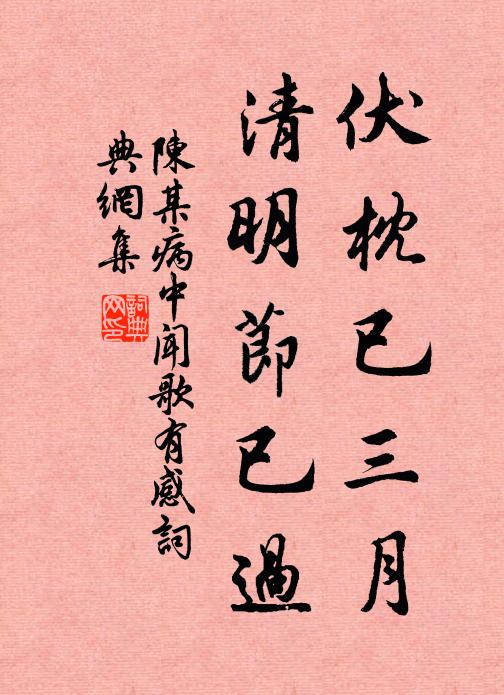 伏枕已三月
清明節已過
陳某病中聞歌有感詞
典網集
詞典網印